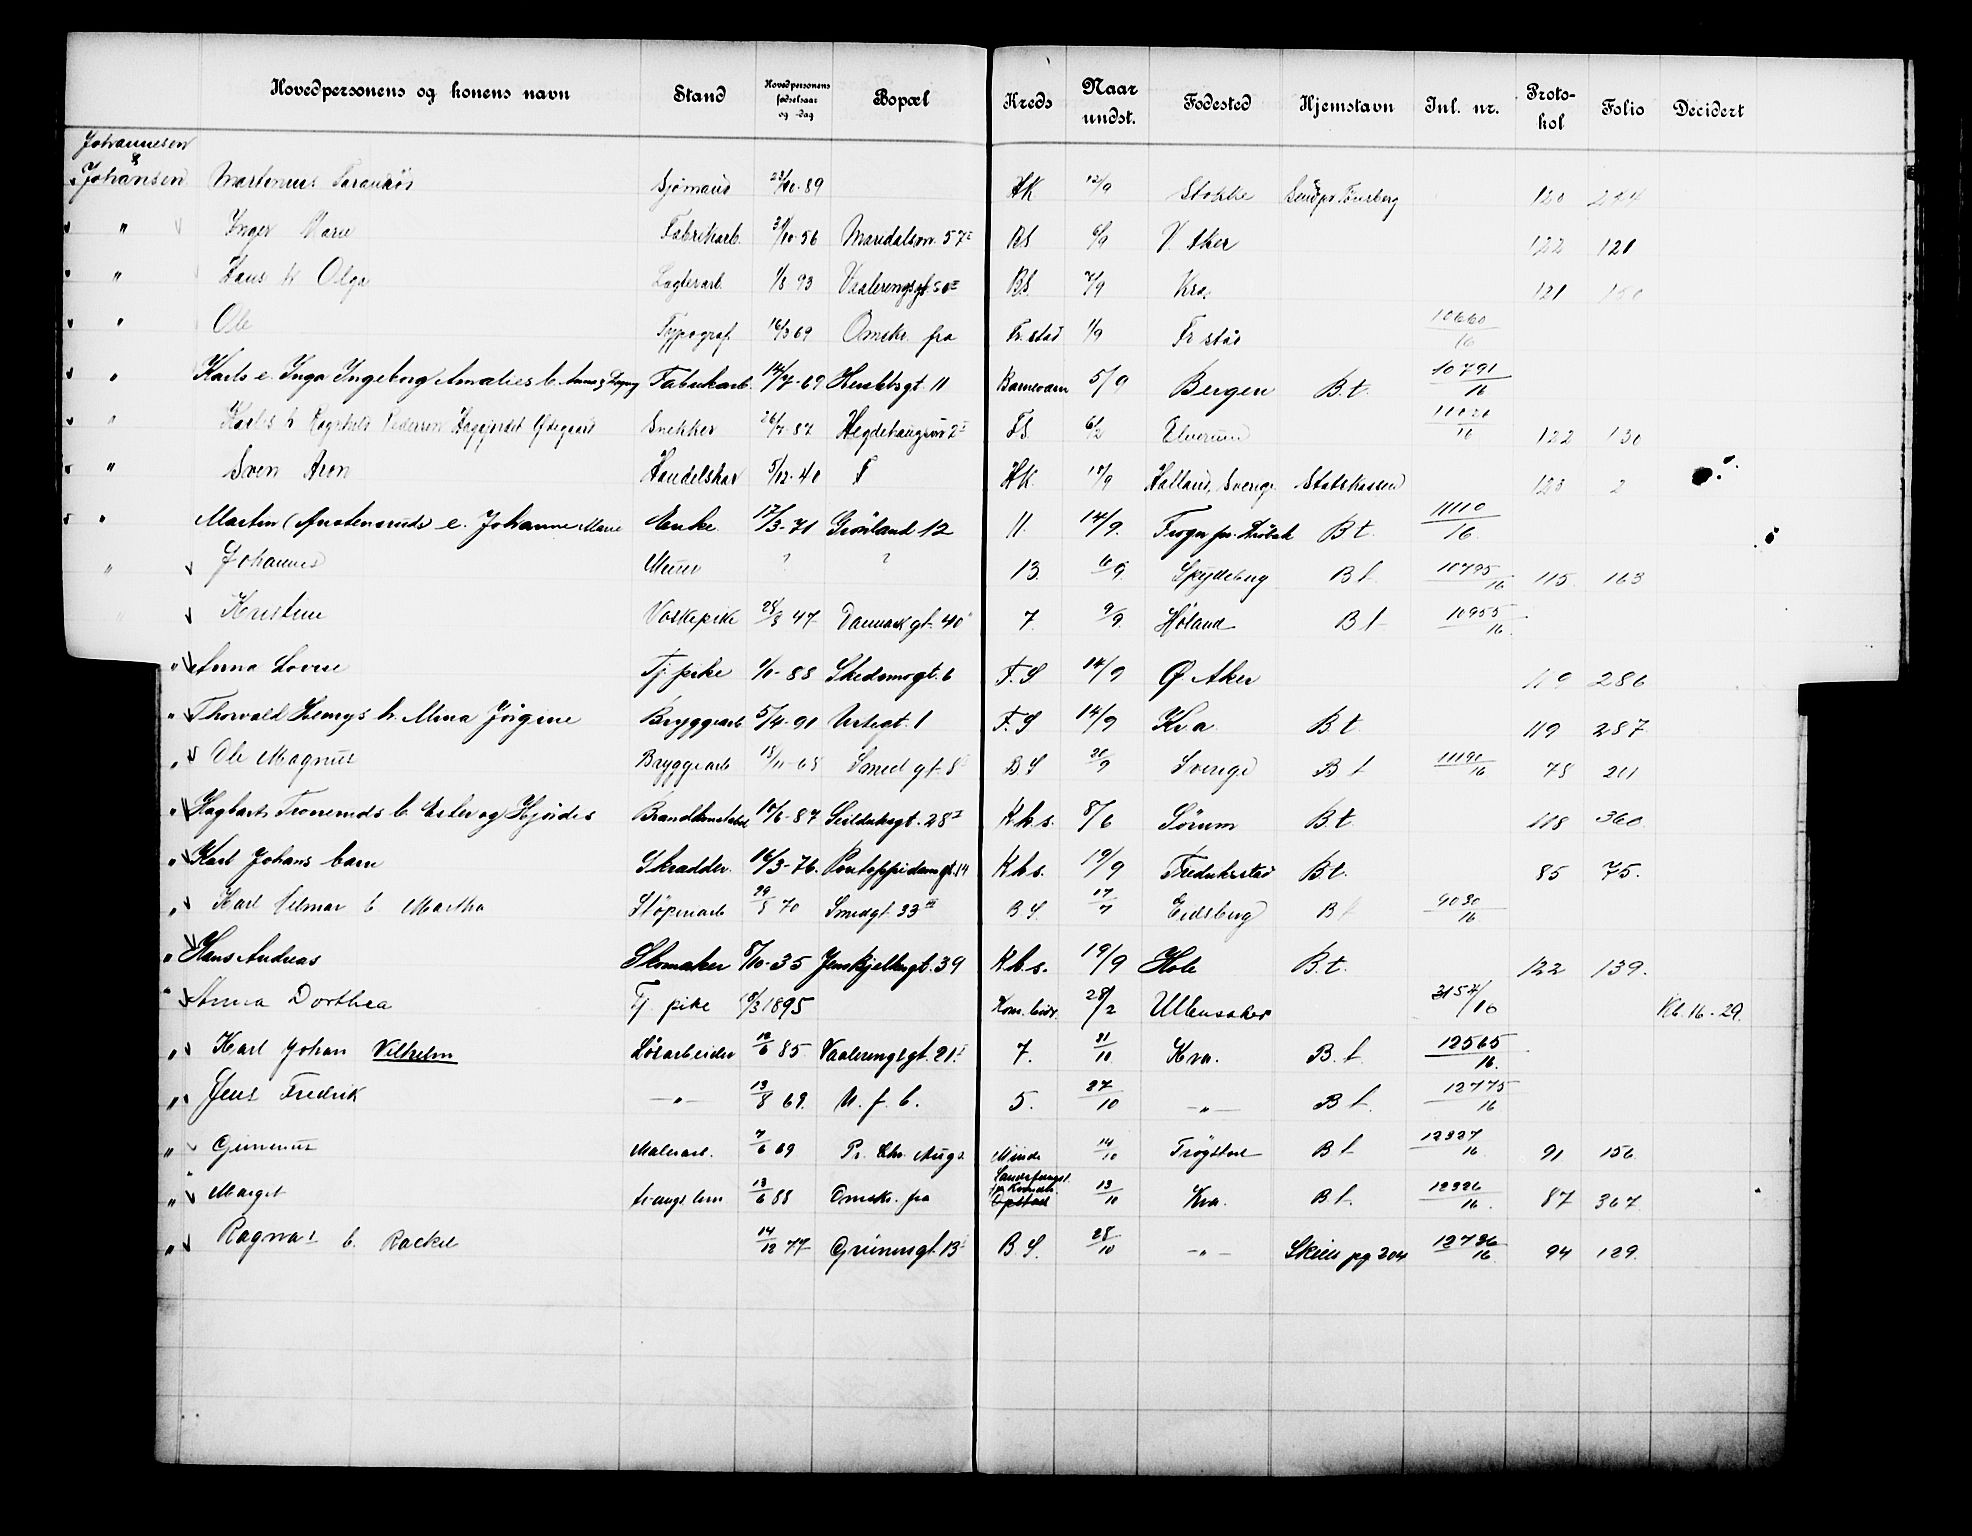 Hovedpersonens og konens navn Stand Hovedpersonens fødselsaar og -dag Bopæl Kreds Naar undst. Fødested Hjemstavn Jnl. nr. Protokol Folio Decidert
Johannesen
&
Johansen Martinius Sjømand 23/10-89 HK 12/9 Stokke Tønsberg 120 244
" Inger Marie Fabrikarb. 56 Maridalsvn. 57 BS 6/9 V. Aker 122 121
" Hans h Olga Lagerarb. 1/8 93 Vaalerengsgt 50 BS 7/9 Kra. 121 150
" Ole Typograf 16/3 69 Omsk. fra Fr.stad 1/9 Fr stad 10660/16
" Karls e. Inga Ingeborg Amalies b. Fabrikarb. 14/7-69 Herslebsgt. 11 Barnevern 5/9 Bergen B.t. 10791/16
" Karls h Ragnhild Pedersen Ødegaard Snekker 26/7-87 Hegdehaugsvn 2 FS 6/2 Elverum 122 130
" Sven Aron Handelskar 5/12-40 F HK. 18/9 Halland, Sverige Statskassen 120 2
" Martin (Austensruds) e. Johanne Marie Enke 17/3-71 Grønland 12 11. 14/9. Frogn pr. Drøbak B t. 11110/16
" Johannes Murer ? ? 13. 6/9. Spydeberg B t 10795/16 115. 163
" Kristine Vaskepike 28/3 47 Danmarkgt. 40 7. 9/9. Høland B t 10955/16.
" Anna Lovise Tj. pike 1/10-88 Skedsmogt. 6 F. S 14/9 Ø. Aker 119 286
" Thorvald Henrys h. Alma Jørgine Bryggearb 5/4-91 Urtegt. 1 F. S 14/9 Kra B t. 119 287
" Ole Magnus Bryggearb 18/11-68 Smedgt. 8 B S 20/9 Sverige B t 11191/16 78 211
" Hagbart b. Ester og Hjørdis Brandkonstabel 10/6-87 Seilduksgt. 28 K.k.s. 8/6 Sørum B.t. 118 360
" Karl Johans barn Skrædder. 16/3-76. Pontoppidansgt. 14 K.k.s. 19/9 Fredrikstad B t. 85 75.
" Karl Hilmar b. Martha Støperiarb 29/5 70 Smedgt. 33 B S. 17/7 Eidsberg B t 9030/16
" Hans Andreas Skomaker 8/10-35 Jens Bjelkesgt. 39 K.k.s. 19/9 Hole B.t. 122 139.
" Anna Dorthea Tj. pike 8/3 1895 Kom. bidr. 28/2 Ullensaker 3157/10 Kl. 16-29.
" Karl Johan Vilhelm Løsarbeider 12/6 85. Vaalerengsgt. 21. 7. 21/10 Kra. B. t. 12565/16.
" Jens Fredrik —"— 13/8 69. U. f. b. 5. 27/10 —"— B t. 12775/16
" Gunerius Malerarb. 7/6 69 P. Chr. Aug. 2 Minde 14/10 Trøgstad B t 12327/16 91 156
" Marget 13/6 88 Omsk. fra 13/10 Kra. B t. 12326/16. 87 367.
" Ragnar b. Rackel 14/12 77 Grünersgt. 13 B S. 28/10 —"— Skien pg 204 12736/16. 94 129.